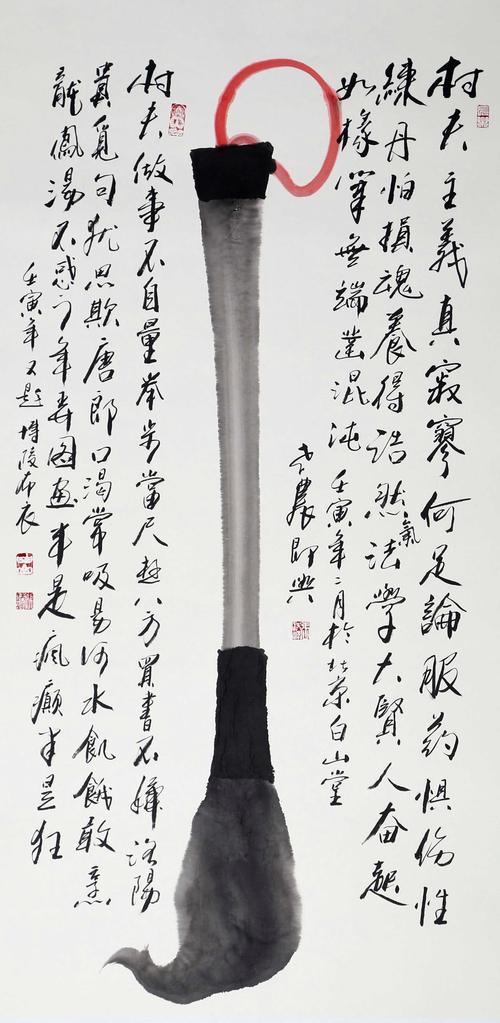 村夫主義真寂寥何足論服药惧伤性
練丹怕損魂養得浩然氣法學大賢人奋起
如椽筆無端凿混沌 壬寅年二月於北京白山堂
農即興
村夫做事不自量举步當尺八方買書不嫌洛陽
貴覓句犹思欺唐郎口渴常吸易河水飢餓敢烹
龍鳳湯不惑之年弄图畫半是瘋癲半是狂
壬寅年又題博陵布衣